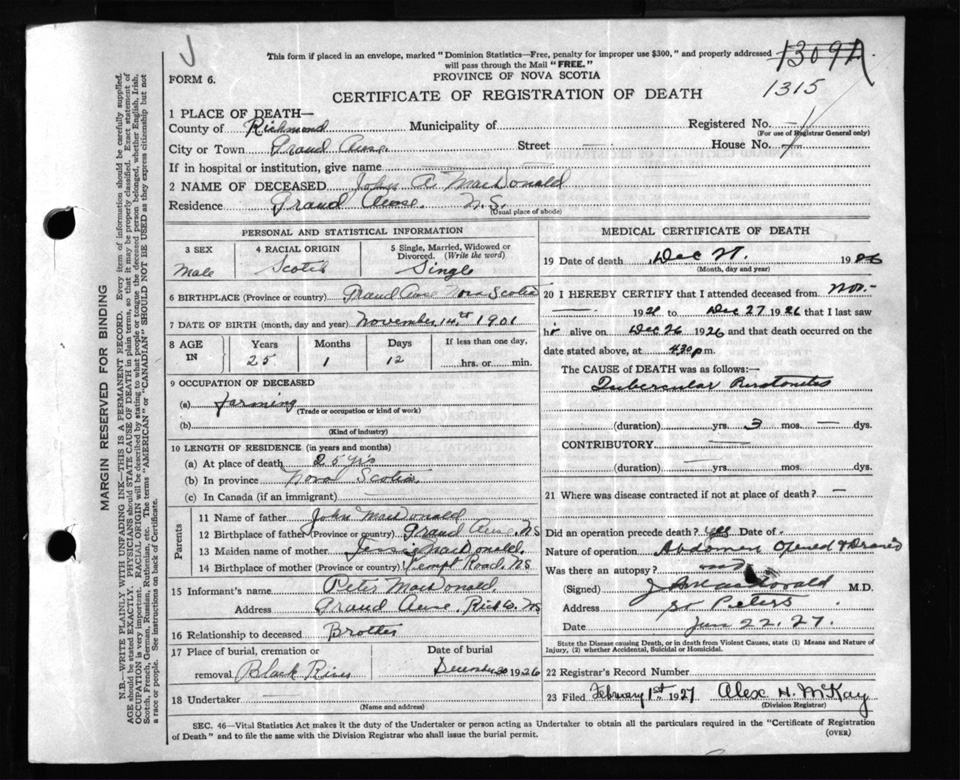 This form if placed in an envelope, marked "Dominion Statistics—Free, penalty for improper use $300," and properly addressed
will pass through the Mail "FREE."
1315
FORM 6.
PROVINCE OF NOVA SCOTIA
CERTIFICATE OF REGISTRATION OF DEATH
1 PLACE OF DEATH—
County of Richmond Municipality of Registered No.
(For use of Registrar General only)
City or Town Grand Anse. Street — House No.
If in hospital or institution, give name
2 NAME OF DECEASED John A. MacDonald
Residence Grand Anse. N.S.
(Usual place of abode)
PERSONAL AND STATISTICAL INFORMATION
3 SEX 4 RACIAL ORIGIN 5 Single, Married, Widowed or
Divorced. (Write the word)
Male Scotch Single
6 BIRTHPLACE (Province or country) Grand Anse Nova Scotia
7 DATE OF BIRTH (month, day and year) November 14th 1901
8 AGE IN Years Months Days If less than one day,
25 1 12 hrs. or min.
9 OCCUPATION OF DECEASED
(a) farming
(Trade or occupation or kind of work)
(b)
(Kind of industry)
10 LENGTH OF RESIDENCE (in years and months)
(a) At place of death 25 yrs
(b) In province Nova Scotia
(c) In Canada (if an immigrant)
Parents
11 Name of father John MacDonald
12 Birthplace of father (Province or country) Grand Anse. N.S
13 Maiden name of mother Jessie MacDonald.
14 Birthplace of mother (Province or country) Kempt Road. N.S
15 Informant's name Peter MacDonald
Address Grand Anse, Rich Co. N.S
16 Relationship to deceased Brother
17 Place of burial, cremation or Date of burial
removal Black River December 1926
18 Undertaker
(Name and address)
MEDICAL CERTIFICATE OF DEATH
19 Date of death Dec 27. 1926
(Month, day and year)
20 I HEREBY CERTIFY that I attended deceased from Nov.-
— 1926 to Dec 27 1926 that I last saw
him alive on Dec 26 1926 and that death occurred on
date stated above, at 4.30 p.m.
The CAUSE of DEATH was as follows:—
Tubercular Peritonitis
(duration) yrs. 3 mos. — dys.
CONTRIBUTORY —
(duration) — yrs. mos. dys.
21 Where was disease contracted if not at place of death? —
Did an operation precede death? yes Date of
Nature of operation Abdomen Opened & Drained
Was there an autopsy?
(Signed) MacDonald M.D.
Address St Peters
Date Jan 22. 27.
State the Disease causing Death, or in death from Violent Causes, state (1) Means and Nature of
Injury, (2) whether Accidental, Suicidal or Homicidal.
22 Registrar's Record Number
23 Filed February 1st 1927 Alex H. McKay
(Division Registrar)
SEC. 46—Vital Statistics Act makes it the duty of the Undertaker or person acting as Undertaker to obtain all the particulars required in the "Certificate of Registration
of Death" and to file the same with the Division Registrar who shall issue the burial permit.
(OVER)
MARGIN RESERVED FOR BINDING
N.B.—WRITE PLAINLY WITH UNFADING INK—THIS IS A PERMANENT RECORD. Every item of information should be carefully supplied.
AGE should be stated EXACTLY. PHYSICIANS should STATE CAUSE OF DEATH in plain terms, so that it may be properly classified. Exact statement of
OCCUPATION is very important. RACIAL ORIGIN will be described by stating to what people or tongue the deceased person belonged, whether English, Irish,
Scotch, French, German, Russian, Ruthenian, etc. The terms "AMERICAN" or "CANADIAN" SHOULD NOT BE USED as they express citizenship but not
a race or people. See instructions on back of Certificate.